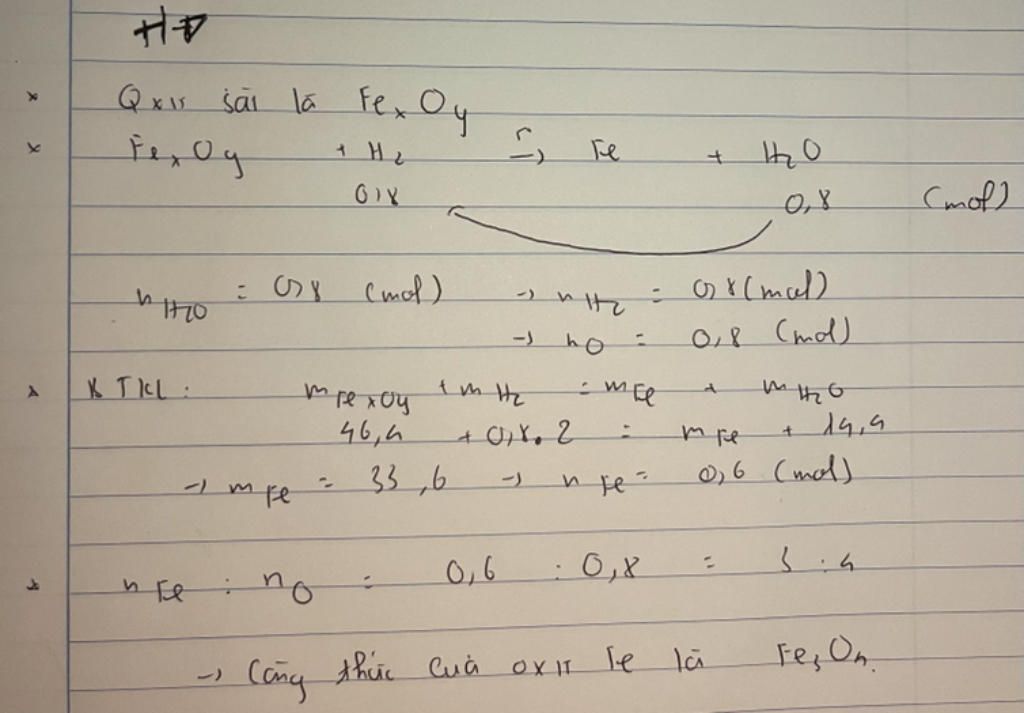 HD
* Oxit sắt là FexOy
* FexOy + H2 → Fe + H2O
0,8 0,8 (mol)
nH2O = 0,8 (mol) → nH2 = 0,8 (mol)
→ nO = 0,8 (mol)
* BTKL: mFexOy + mH2 = mFe + mH2O
46,4 + 0,8.2 = mFe + 14,4
→ mFe = 33,6 → nFe = 0,6 (mol)
* nFe : nO = 0,6 : 0,8 = 3 : 4
→ Công thức của oxit Fe là Fe3O4.